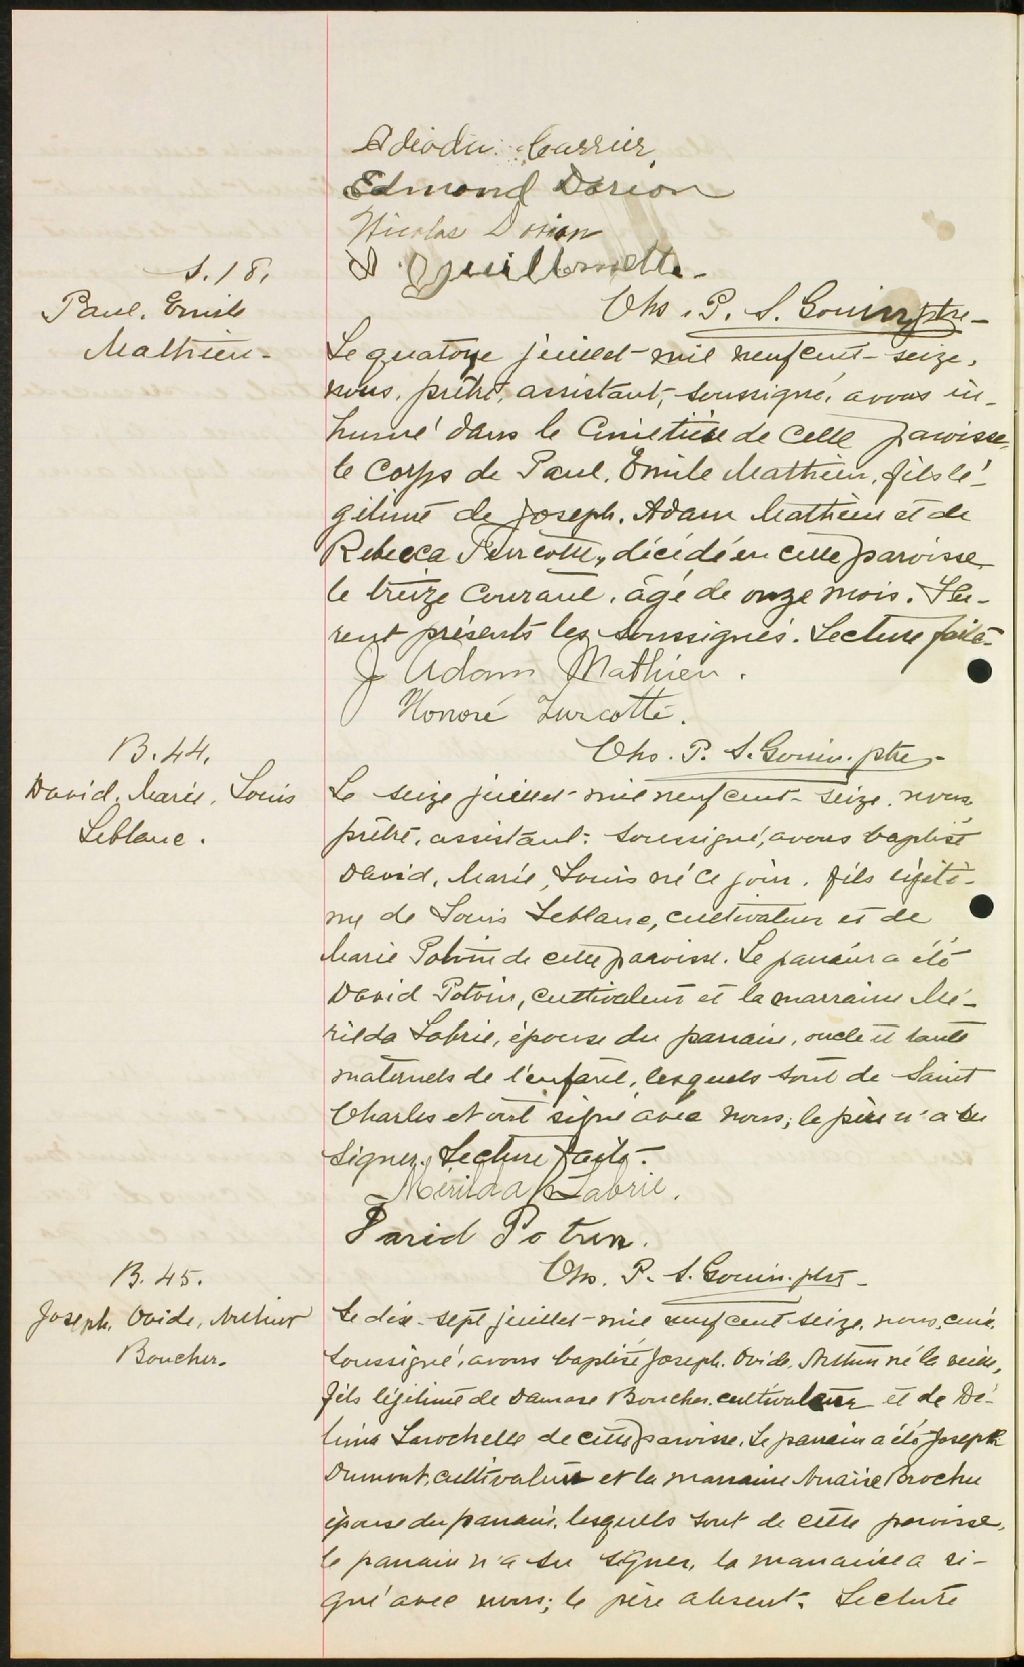 Adiodu. Carrier,
Edmond Dorion
Nicolas Dorion
Chs. P. S. Gouin, ptre-
S. 18.
Paul. Emile
Mathieu-
Le quatorze juillet mil neuf cent-seize,
nous, prêtre, assistant, soussigné, avons in-
humé dans le Cimetière de cette paroisse,
le corps de Paul. Emile Mathieu, fils lé-
gitime de Joseph. Adam Mathieu et de
Rebecca Turcotte, décédé en cette paroisse
le treize courant, âgé de onze mois. Fu-
rent présents les soussignés. Lecture faite-
J Adam Mathieu.
Honoré Turcotte.
Chs. P. S. Gouin. ptre-
B. 44.
David, Marie, Louis
Leblanc.
Le seize juillet mil neuf cent-seize, nous,
prêtre, assistant soussigné, avons baptisé
David, Marie, Louis né ce jour, fils légiti-
me de Louis Leblanc, cultivateur et de
Marie Potvin de cette paroisse. Le parrain a été
David Potvin, cultivateur et la marraine Mé-
rilda Labrie, épouse du parrain, oncle et tante
maternels de l'enfant, lesquels sont de Saint
Charles et ont signé avec nous; le père n'a su
signer. Lecture faite.
Merilda Labrie.
David Potvin.
Chs. P. S. Gouin. ptre-
B. 45.
Joseph, Ovide, Arthur
Boucher.
Le dix-sept juillet mil neuf cent seize, nous, curé,
soussigné, avons baptisé Joseph. Ovide. Arthur né la veille,
fils légitime de Damase Boucher, cultivateur et de Dé-
lima Larochelle de cette paroisse. Le parrain a été Joseph
Dumont, cultivateur et la marraine Anaïse Brochu
épouse du parrain, lesquels sont de cette paroisse,
le parrain n'a su signer, la marraine a si-
gné avec nous; le père absent. Lecture